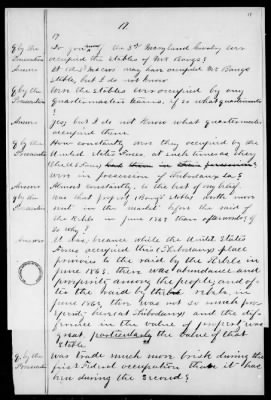 17
17
Q by the Prosecution
Do you know if the 3rd Maryland Cavalry ever
occupied the stables of Mr Bangs?
Answer
3rd Md. Cav. may have occupied Mr Bangs
stable, but I do not know
Q by the Prosecution
Were the stables ever occupied by any
Quartermasters teams. if so what quartermaster
?
Answer
Yes, but I do not know what quartermaster
occupied them.
Q by the Prosecution
How constantly were they occupied by the
United States Forces, at such times as they
was in possession of Thibodaux La?
Answer
Almost constantly to the best of my belief
Q by the Prosecution
Was that property (Bangs' stable) worth more
rent in the market before the raid of
the Rebels in June 1863 than afterwards, & if
so why?
Answer
It was, because while the United States
Forces occupied this (Thibodaux) place
previous to the raid by the Rebels in
June 1863, there was abundance and
prosperity among the people, and af-
ter the raid by the rebels, in
June 1863, there was not so much pros-
perity here at Thibodaux, and the dif-
ference in the value of property was
great, particularly the value of that
stable.
Q. by the Prosecution
Was trade much more brisk during the
first Federal occupation than it has
been during the second?